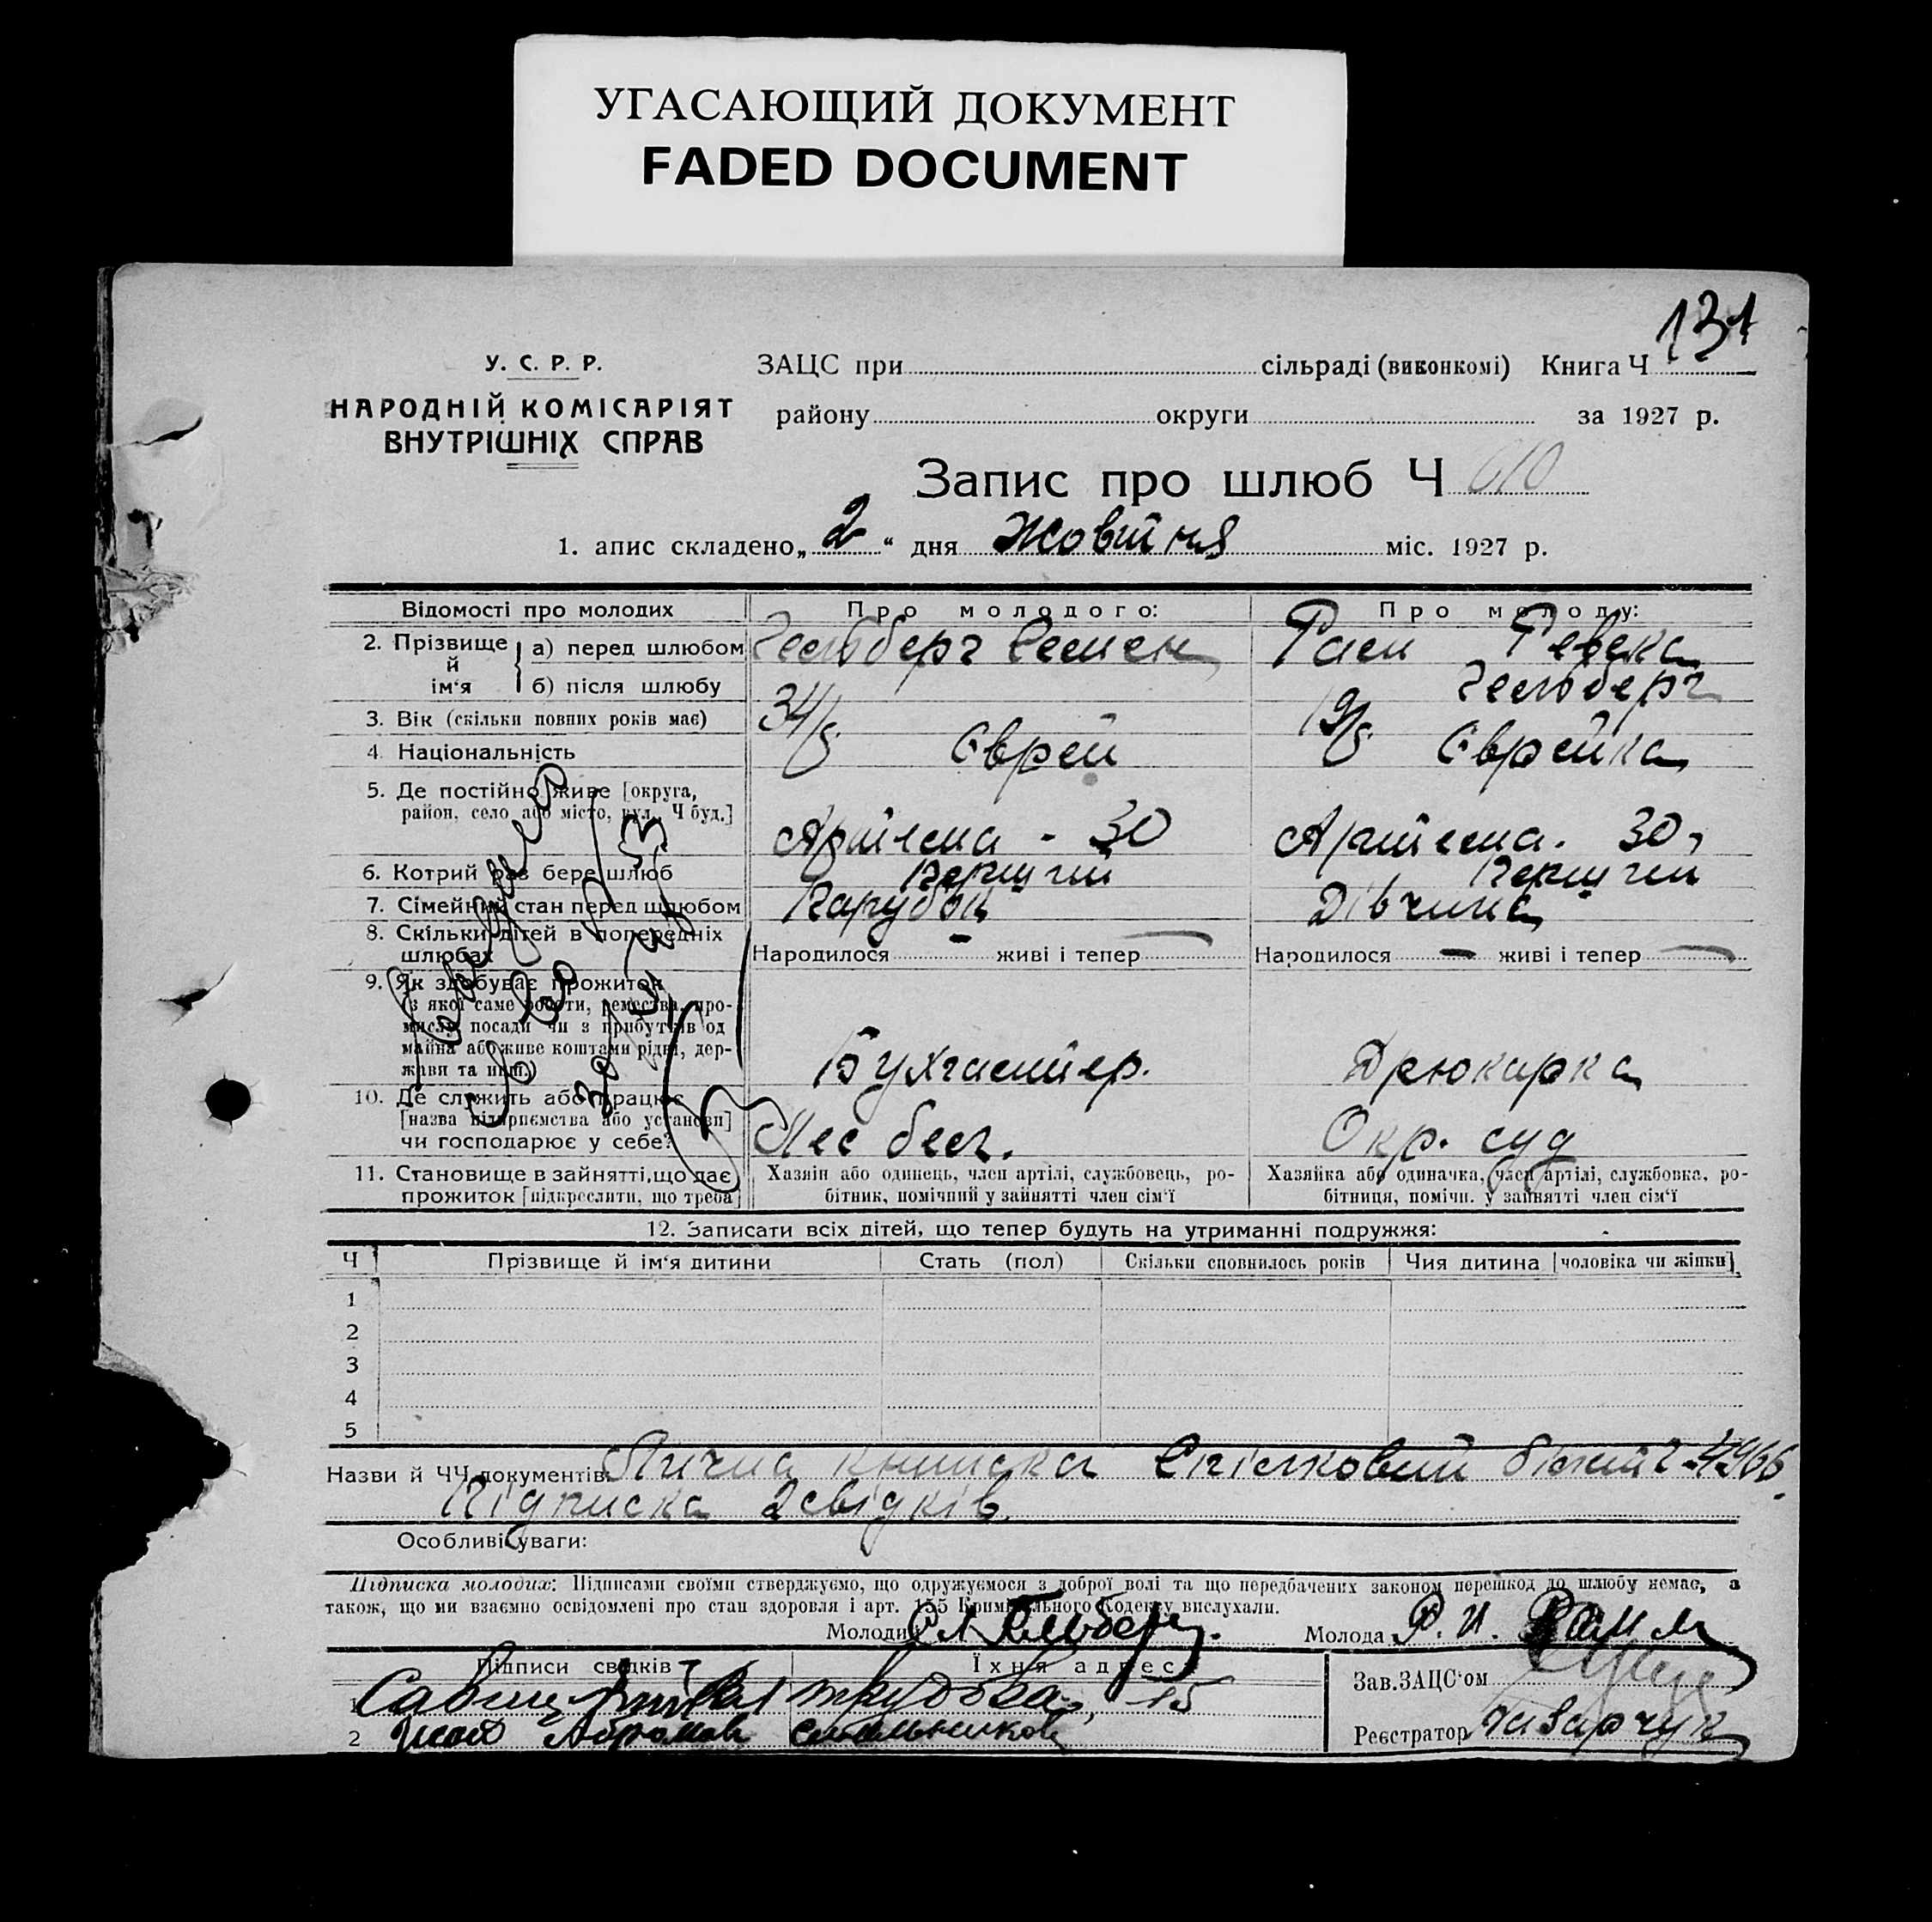 УГАСАЮЩИЙ ДОКУМЕНТ
FADED DOCUMENT
131
У. С. Р. Р.
НАРОДНІЙ КОМІСАРІЯТ
ВНУТРІШНІХ СПРАВ
ЗАЦС при сільраді (виконкомі) Книга Ч
району округи за 1927 р.
Запис про шлюб Ч 610
1. апис складено „ 2 “ дня Жовтня міс. 1927 р.
Відомості про молодих Про молодого: Про молоду:
2. Прізвище й ім‘я а) перед шлюбом Гельберг Семен Раем Ревека
б) після шлюбу Гельберг
3. Вік (скільки повних років має) 34/5 19/5
4. Національність Єврей Єврейка
5. Де постійно живе [округа,
район, село або місто, вул., Ч буд.] Артема - 30 Артема. 30,
6. Котрий раз бере шлюб Перший Перший
7. Сімейний стан перед шлюбом Парубок Дівчина
8. Скільки дітей в попередніх
шлюбах Народилося — живі і тепер — Народилося — живі і тепер —
9. Як здобуває прожиток
(з якої саме роботи, ремества, про-
мислу, посади чи з прибутків од
майна або живе коштами рідні, дер-
жави та инш.) Бухгалтер. Друкарка
10. Де служить або працює
[назва підприємства або установи]
чи господарює у себе? Окр. суд
11. Становище в зайнятті, що дає
прожиток [підкреслити, що треба]
Хазяїн або одинець, член артілі, службовець, ро-
бітник, помічний у зайнятті член сім‘ї
Хазяйка або одиначка, член артілі, службовка, ро-
бітниця, помічн. у зайнятті член сім‘ї
12. Записати всіх дітей, що тепер будуть на утриманні подружжя:
Ч Прізвище й ім‘я дитини Стать (пол) Скільки сповнилось років Чия дитина [чоловіка чи жінки]
1
2
3
4
5
Назви й ЧЧ документів: Лична книжка Спілковий білет 2-4966.
Підписка 2 свідків.
Особливі уваги:
Підписка молодих: Підписами своїми стверджуємо, що одружуємося з доброї волі та що передбачених законом перешкод до шлюбу немає, а
також, що ми взаємно освідомлені про стан здоровля і арт. 155 Кримінального Кодексу вислухали.
Молодий Молода Р. И.
Підписи свідків Їхня адреса
1 15
2
Зав. ЗАЦС‘ом
Реєстратор